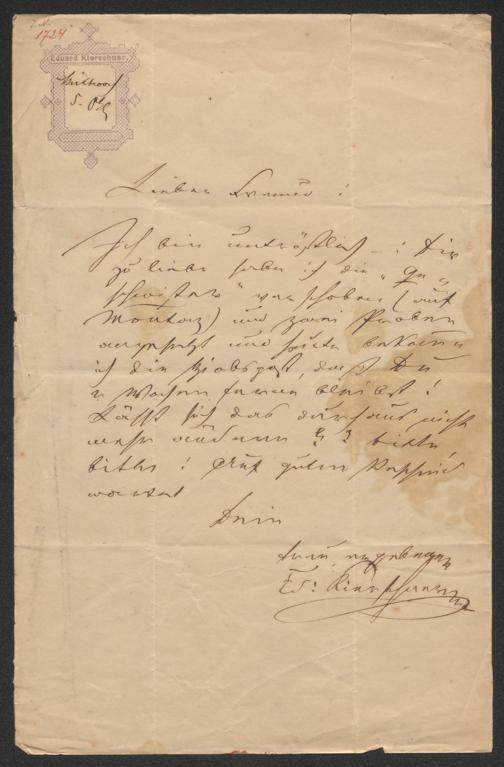 I. N.
1724
Eduard Kierschner.
Mittwoch
5.
Lieber Freund!
Ich bin untröstlich –! Dir
zu liebe habe ich die „Ge„
schwister“ verschoben (auf
Montag) und zwei Proben
angesetzt und heute bekomme
ich die Hiobspost, daß Du
2 Wochen ferne bleibst!
Läßt sich das durchaus nicht
mehr ändern ? bitte,
bitte! Auf guten Bescheid
wartet
Dein
treu ergebener
Ed: Kierschner